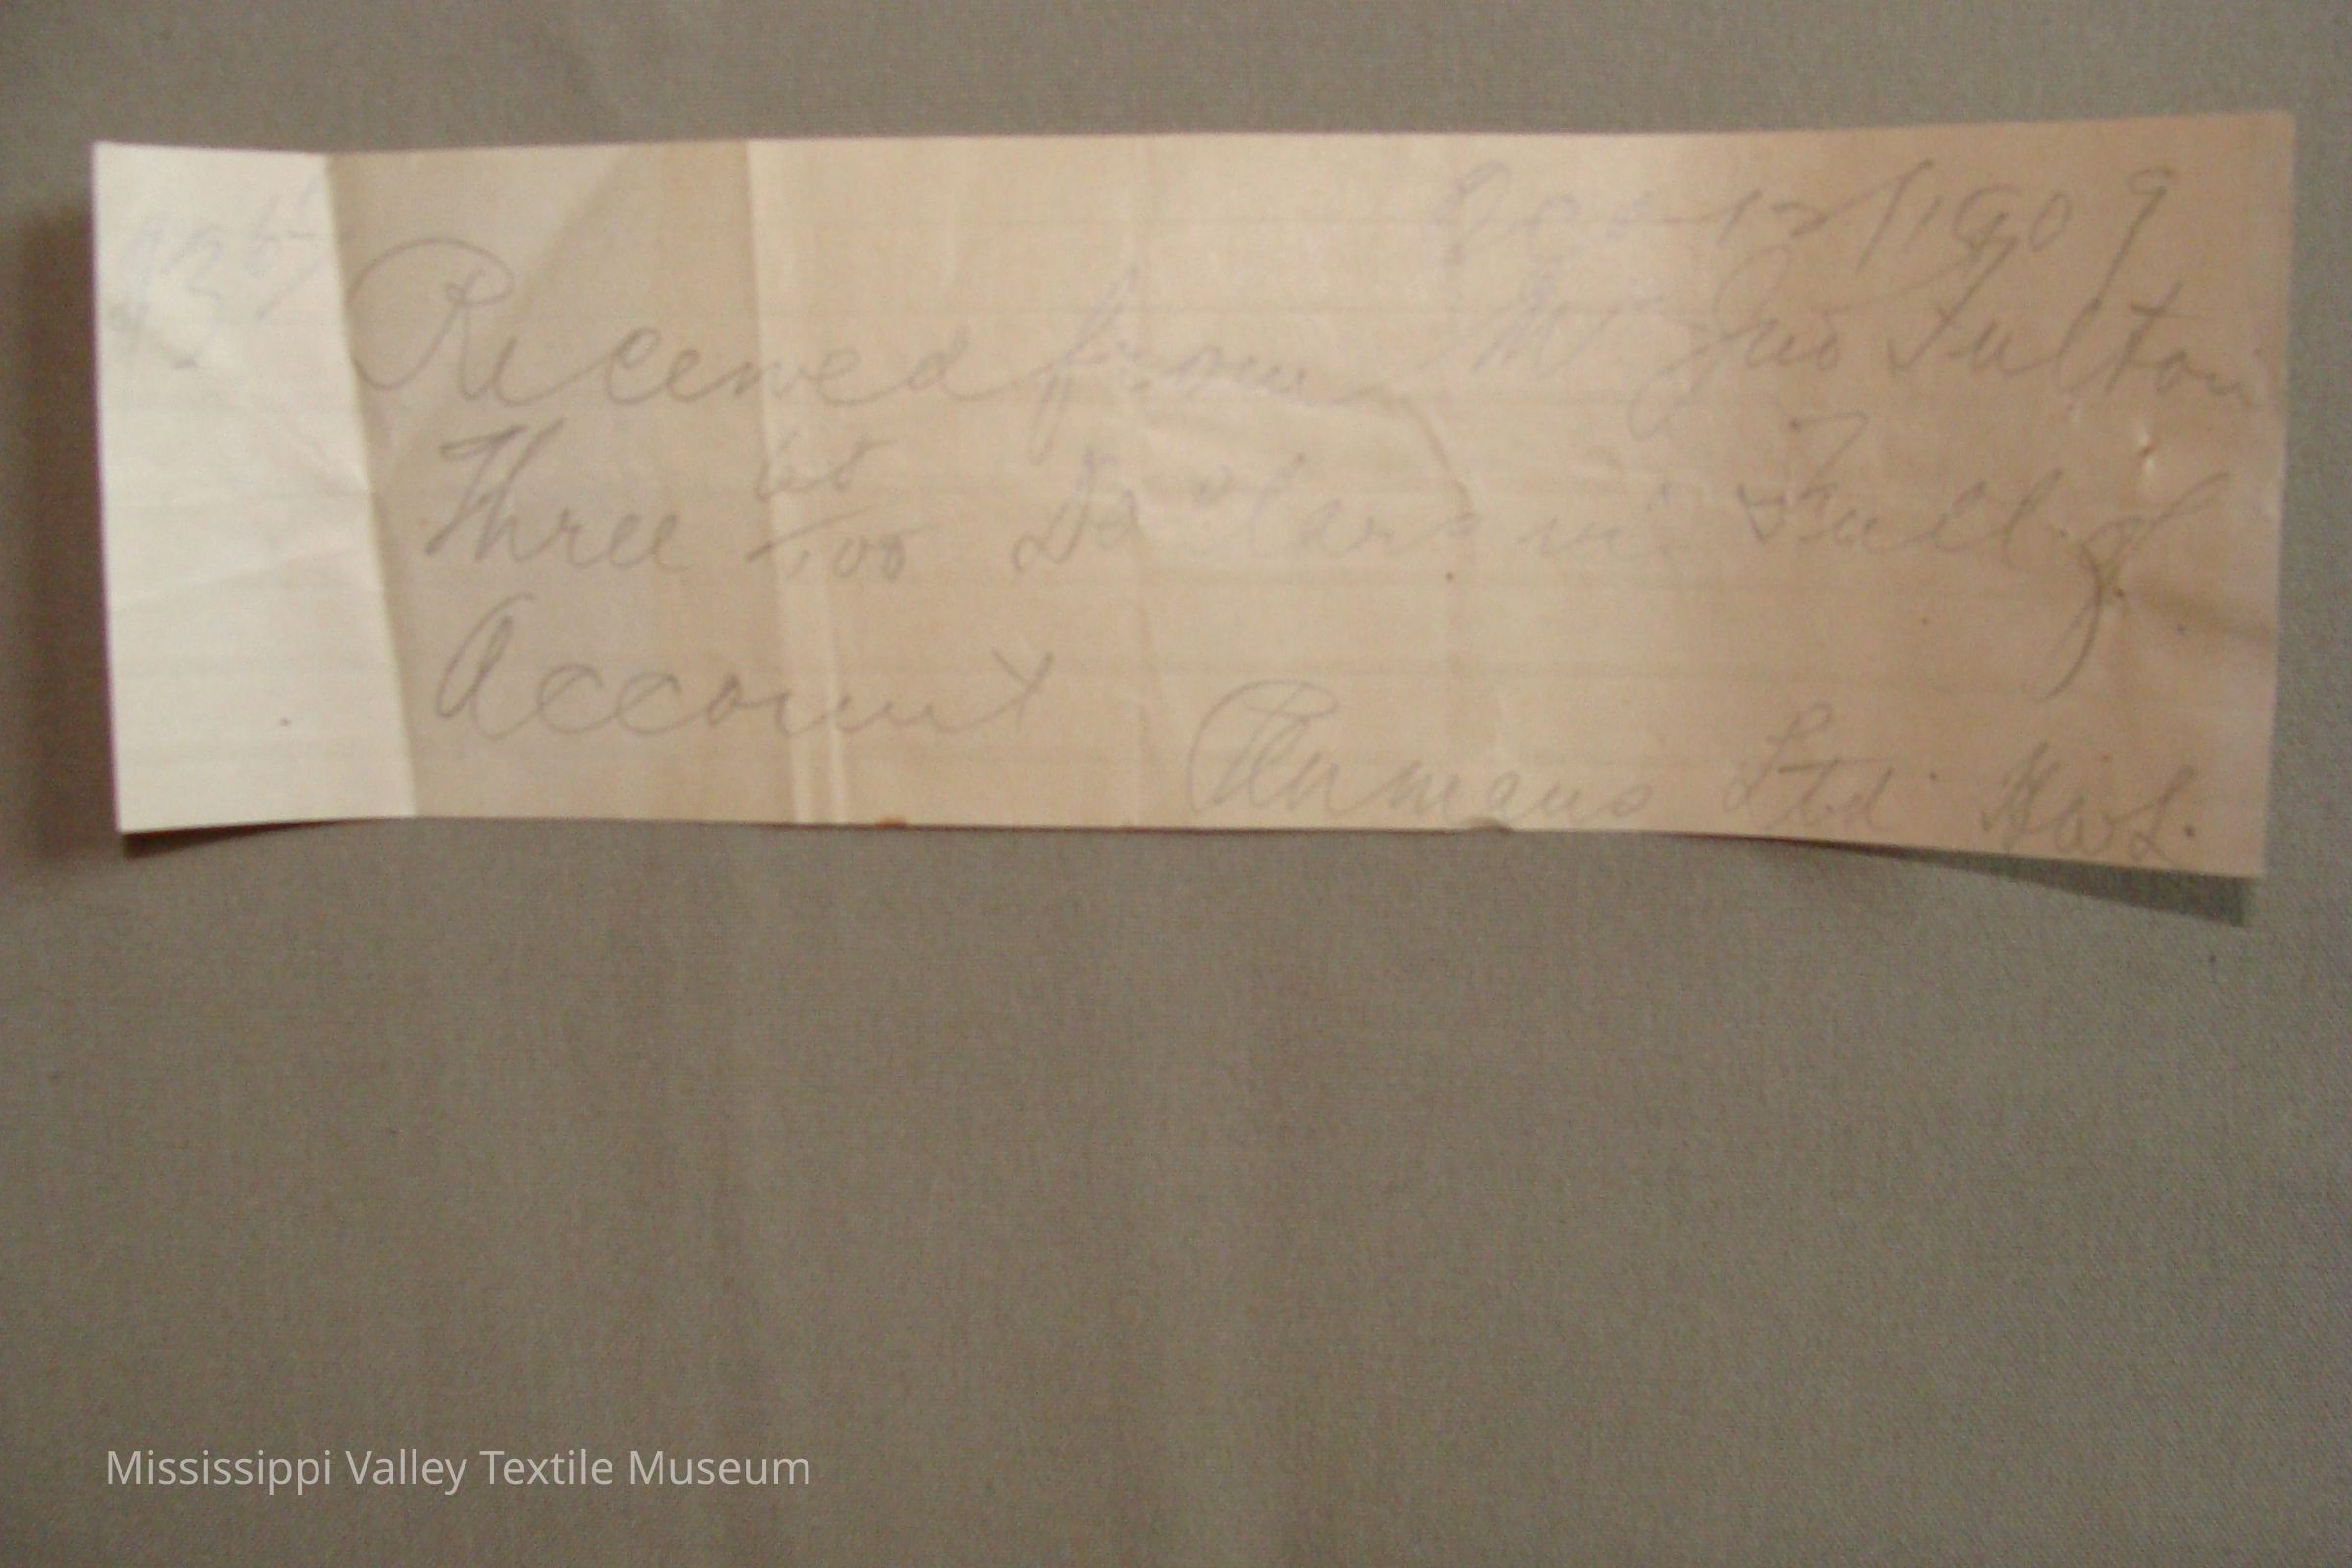 12/1909
Received from Mr Jno Fulton
Three 65/100 Dollars in Full of
Account
Ltd
Mississippi Valley Textile Museum